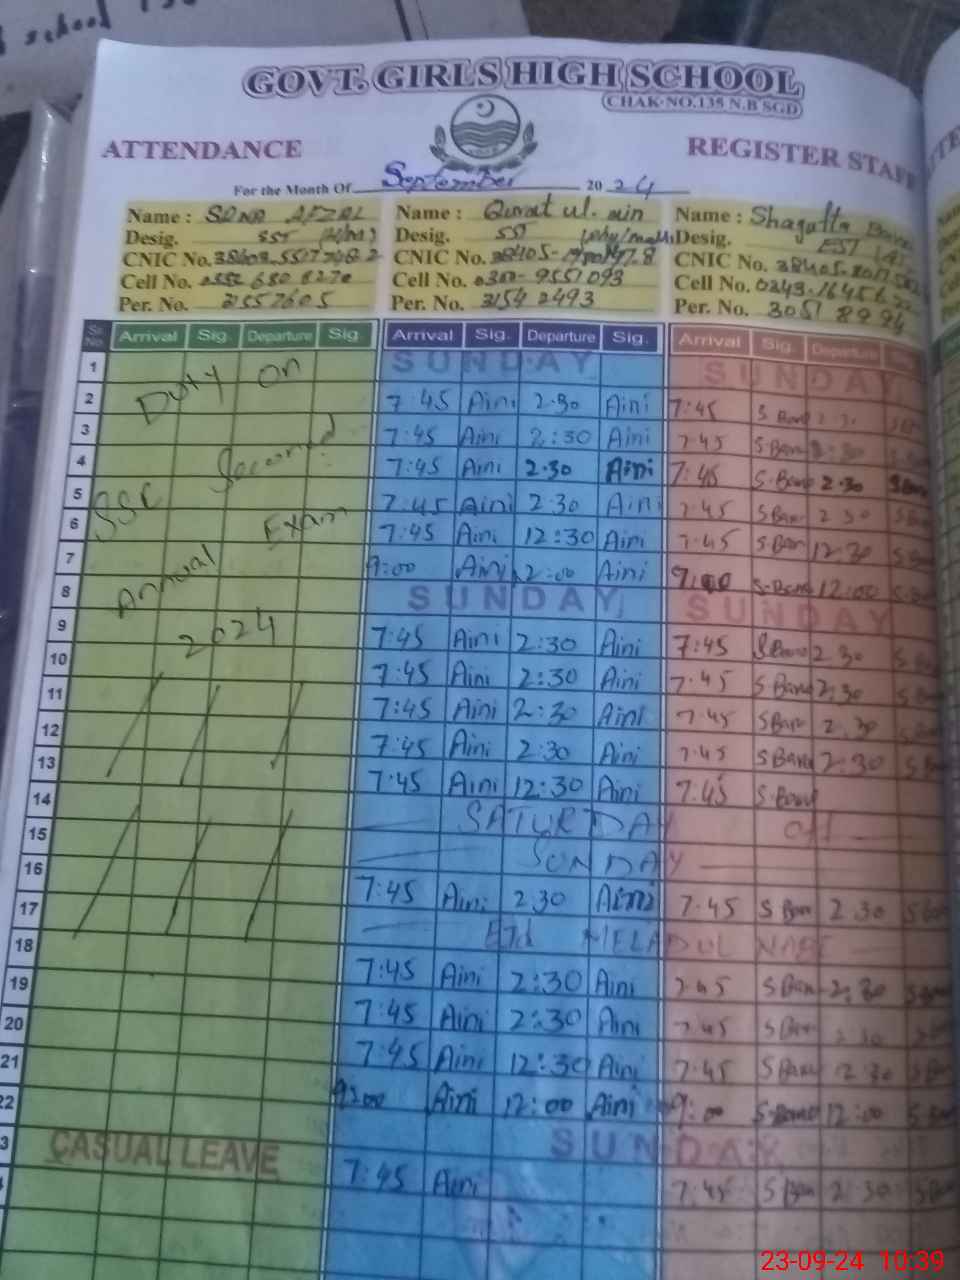 school
GOVT. GIRLS HIGH SCHOOL
CHAK NO.135 N.B SGD
ATTENDANCE REGISTER STAFF
For the Month Of September 2024
Name : SONA AFZAL Name : Qurrat ul. ain Name : Shagufta Bano
Desig. SST Desig. SST Desig. EST
CNIC No. CNIC No. CNIC No.
Cell No. Cell No. 0300-9551093 Cell No.
Per. No. 31557605 Per. No. 31542493 Per. No. 30518994
Sr. No. Arrival Sig. Departure Sig. Arrival Sig. Departure Sig. Arrival Sig. Departure
1 Duty on SUNDAY SUNDAY
2 7:45 Aini 2:30 Aini 7:45 S Bano
3 7:45 Aini 2:30 Aini 7:45 S.Bano 2:30
4 SSC Second 7:45 Aini 2.30 Aini 7:45 S.Bano 2.30
5 7:45 Aini 2.30 Aini 7:45 S Bano 2 30
6 Annual Exam 7:45 Aini 12:30 Aini 7:45 S Ban 12:30
7 9:00 Aini 12:00 Aini 9:00 S-Bano 12:00
8 2024 SUNDAY SUNDAY
9 7:45 Aini 2:30 Aini 7:45 S Bano 2 30
10 7:45 Aini 2:30 Aini 7.45 S Bano 2:30
11 7:45 Aini 2:30 Aini 7.45 S Ban 2.30
12 7:45 Aini 2:30 Aini 7.45 S Bano 2:30
13 7:45 Aini 12:30 Aini 7.45 S.Bano
14 SATURDAY off
15 SUNDAY
16 7:45 Aini 2.30 Aini 7.45 S Ban 2 30
17 Eid MELADUL NABI
18 7:45 Aini 2:30 Aini 7.45 S Ban 2:30
19 7:45 Aini 2:30 Aini 7.45 S Ban 2 30
20 7:45 Aini 12:30 Aini 7.45 S Ban 12 30
21 9:00 Aini 12:00 Aini 9:00 S-Bano 12:00
22 SUNDAY
3 CASUAL LEAVE 7:45 Aini 7:45 S Ban 2 30
23-09-24 10:39